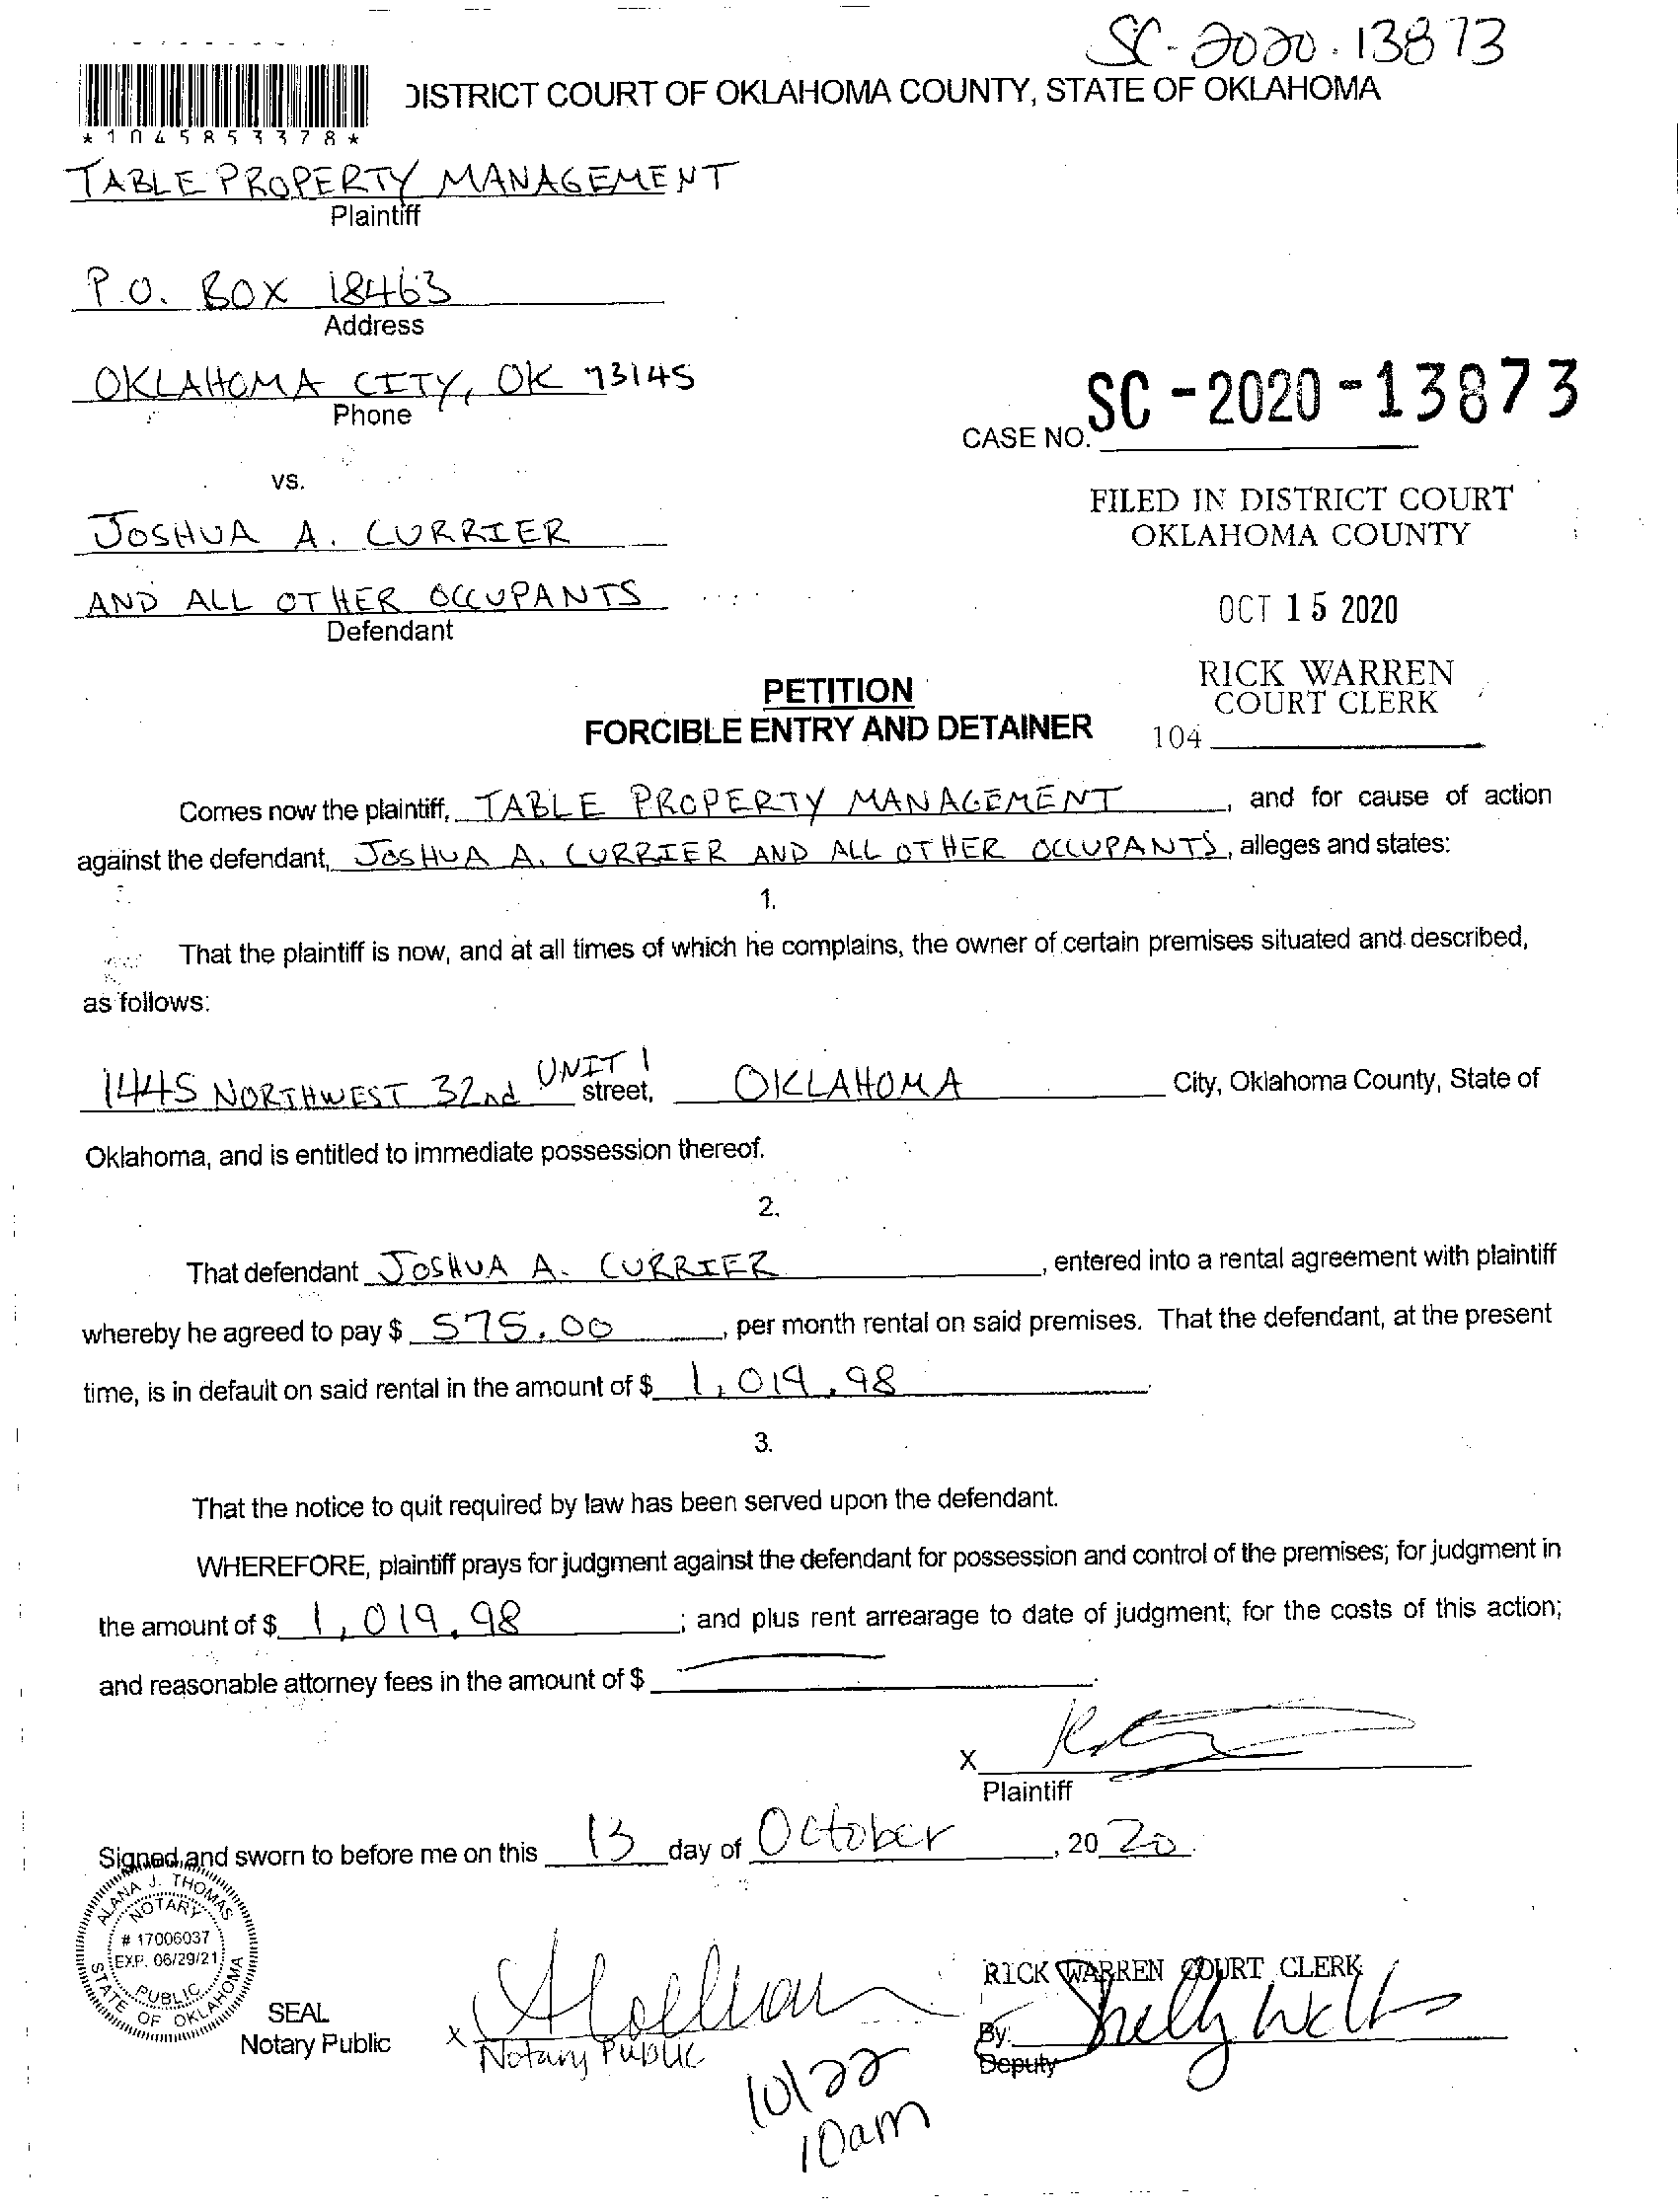 SC-2020-13873
DISTRICT COURT OF OKLAHOMA COUNTY, STATE OF OKLAHOMA
*1045853378*
TABLE PROPERTY MANAGEMENT
Plaintiff
P.O. BOX 18463
Address
OKLAHOMA CITY, OK 73145
Phone
SC-2020-13873
CASE NO.
vs.
FILED IN DISTRICT COURT
OKLAHOMA COUNTY
JOSHUA A. CURRIER
AND ALL OTHER OCCUPANTS
Defendant
OCT 15 2020
RICK WARREN
COURT CLERK
104
PETITION
FORCIBLE ENTRY AND DETAINER
Comes now the plaintiff, TABLE PROPERTY MANAGEMENT, and for cause of action
against the defendant, JOSHUA A. CURRIER AND ALL OTHER OCCUPANTS, alleges and states:
1.
That the plaintiff is now, and at all times of which he complains, the owner of certain premises situated and described,
as follows:
1445 NORTHWEST 32nd UNIT 1 street, OKLAHOMA City, Oklahoma County, State of
Oklahoma, and is entitled to immediate possession thereof.
2.
That defendant JOSHUA A. CURRIER, entered into a rental agreement with plaintiff
whereby he agreed to pay $ 575.00, per month rental on said premises. That the defendant, at the present
time, is in default on said rental in the amount of $ 1,019.98.
3.
That the notice to quit required by law has been served upon the defendant.
WHEREFORE, plaintiff prays for judgment against the defendant for possession and control of the premises; for judgment in
the amount of $ 1,019.98; and plus rent arrearage to date of judgment; for the costs of this action;
and reasonable attorney fees in the amount of $
X
Plaintiff
Signed and sworn to before me on this 13 day of October, 2020.
ALANA J. THOMAS
NOTARY
# 17006037
EXP. 06/29/21
PUBLIC
STATE OF OKLAHOMA
SEAL
Notary Public
x
Notary Public
RICK WARREN COURT CLERK
By: Shelly
Deputy
10/22
10am